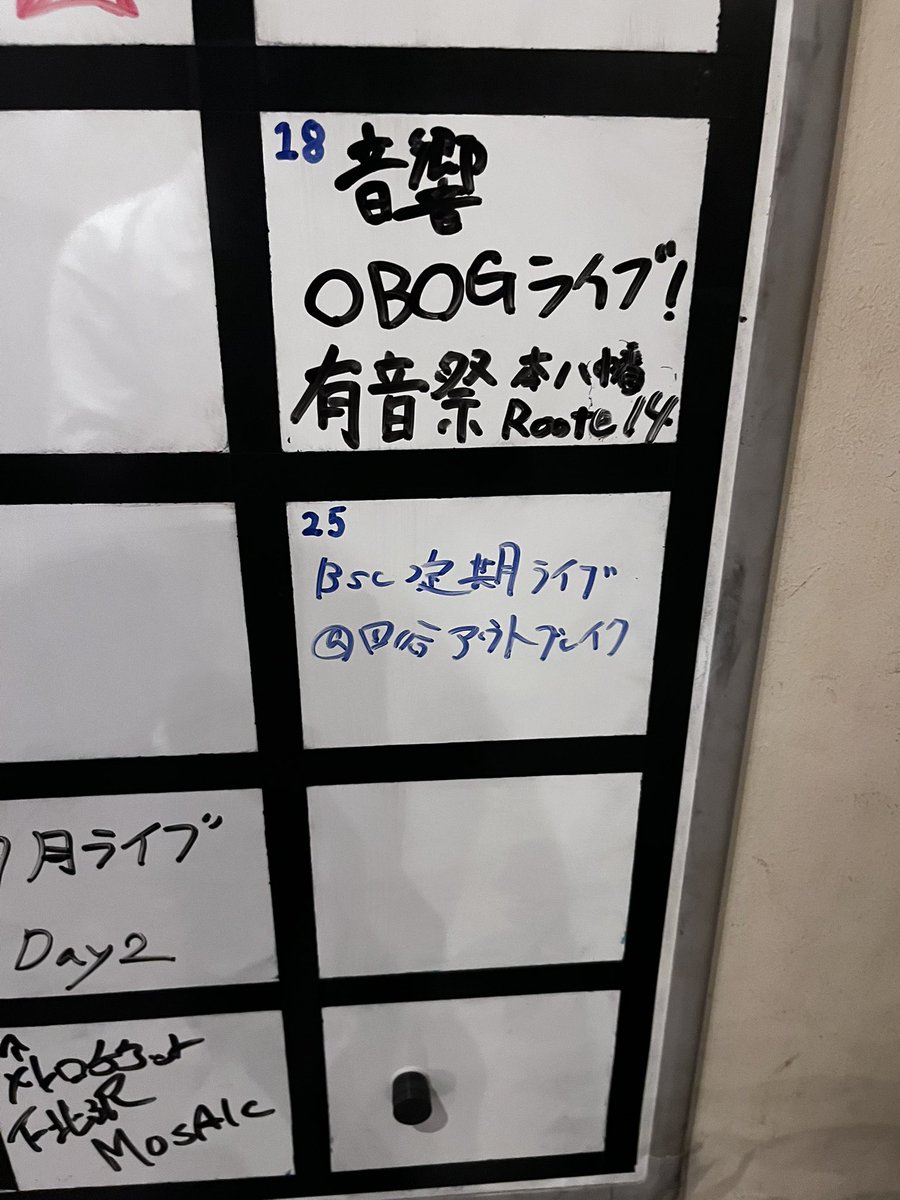 18 音響
OBOGライブ!
有音祭 本八幡
Route 14
25
Bsc 定期ライブ
@四谷 アウトブレイク
月ライブ
Day2
下北沢
MOSAIC